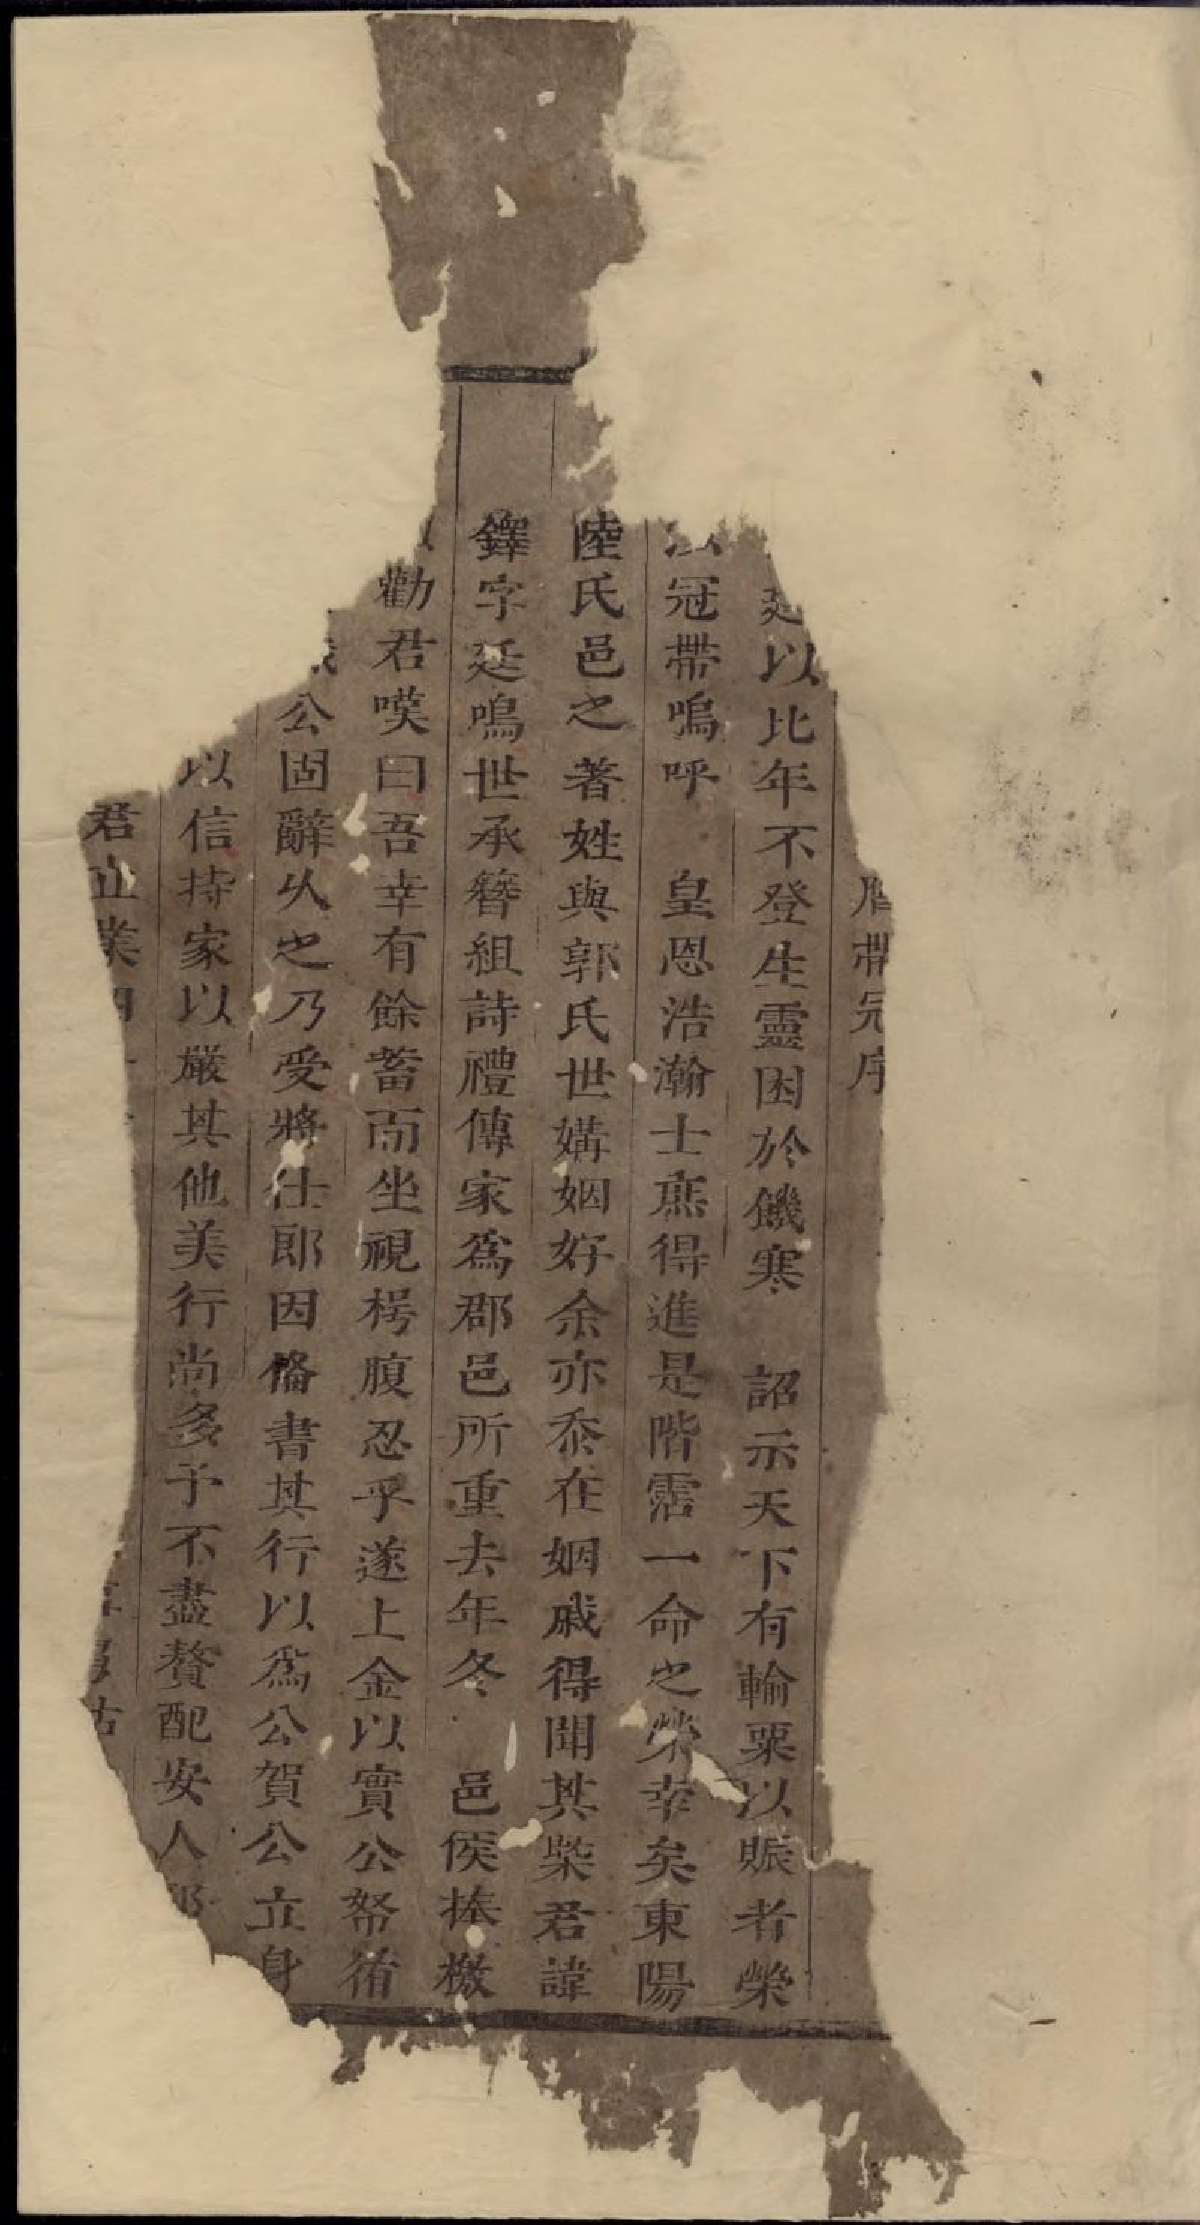 帶冠序
廷以比年不登生靈困於饑寒　詔示天下有輸粟以賑者榮
以冠帶嗚呼　皇恩浩瀚士庶得進是階霑一命之榮幸矣東陽
陸氏邑之著姓與郭氏世媾姻好余亦忝在姻戚得聞其槩君諱
鐸字廷鳴世承簪組詩禮傳家爲郡邑所重去年冬　邑侯捧檄
勸君嘆曰吾幸有餘蓄而坐視枵腹忍乎遂上金以實公帑侑
公固辭久之乃受將仕郎因俻書其行以爲公賀公立身
以信持家以嚴其他美行尚多予不盡贅配安人郭
君立業